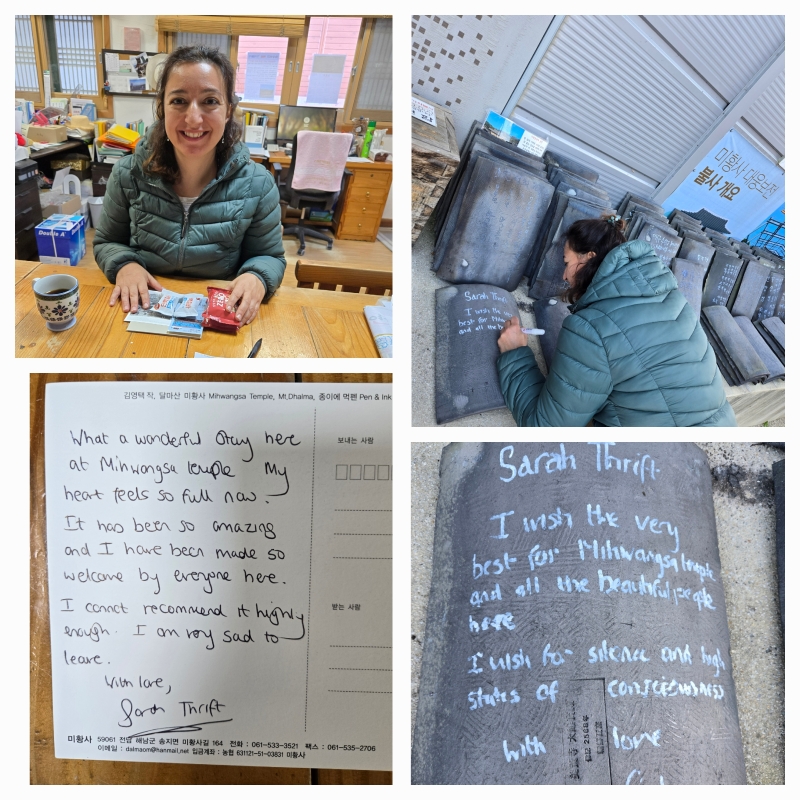 Double A
미황사 대웅보전
불사개요
Sarah Thrift
I wish the
best for
and all the
김영택 작, 달마산 미황사 Mihwangsa Temple, Mt,Dhalma, 종이에 먹펜 Pen & Ink
What a wonderful stay here
at Mihwangsa temple My
heart feels so full now.
It has been so amazing
and I have been made so
welcome by everyone here.
I cannot recommend it highly
enough. I am very sad to
leave.
With love,
Sarah Thrift
보내는 사람
받는 사람
미황사 59061 전남 해남군 송지면 미황사길 164 전화 : 061-533-3521 팩스 : 061-535-2706
이메일 : dalmaom@hanmail.net 입금계좌 : 농협 631121-51-03831 미황사
Sarah Thrift
I wish the very
best for Mihwangsa temple
and all the beautiful people
here
I wish for silence and high
states of consciousness
With love